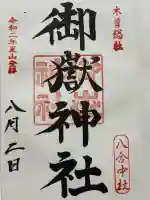 木曽総社
御嶽神社
八合中社
令和二年夏山登拝
八月二日